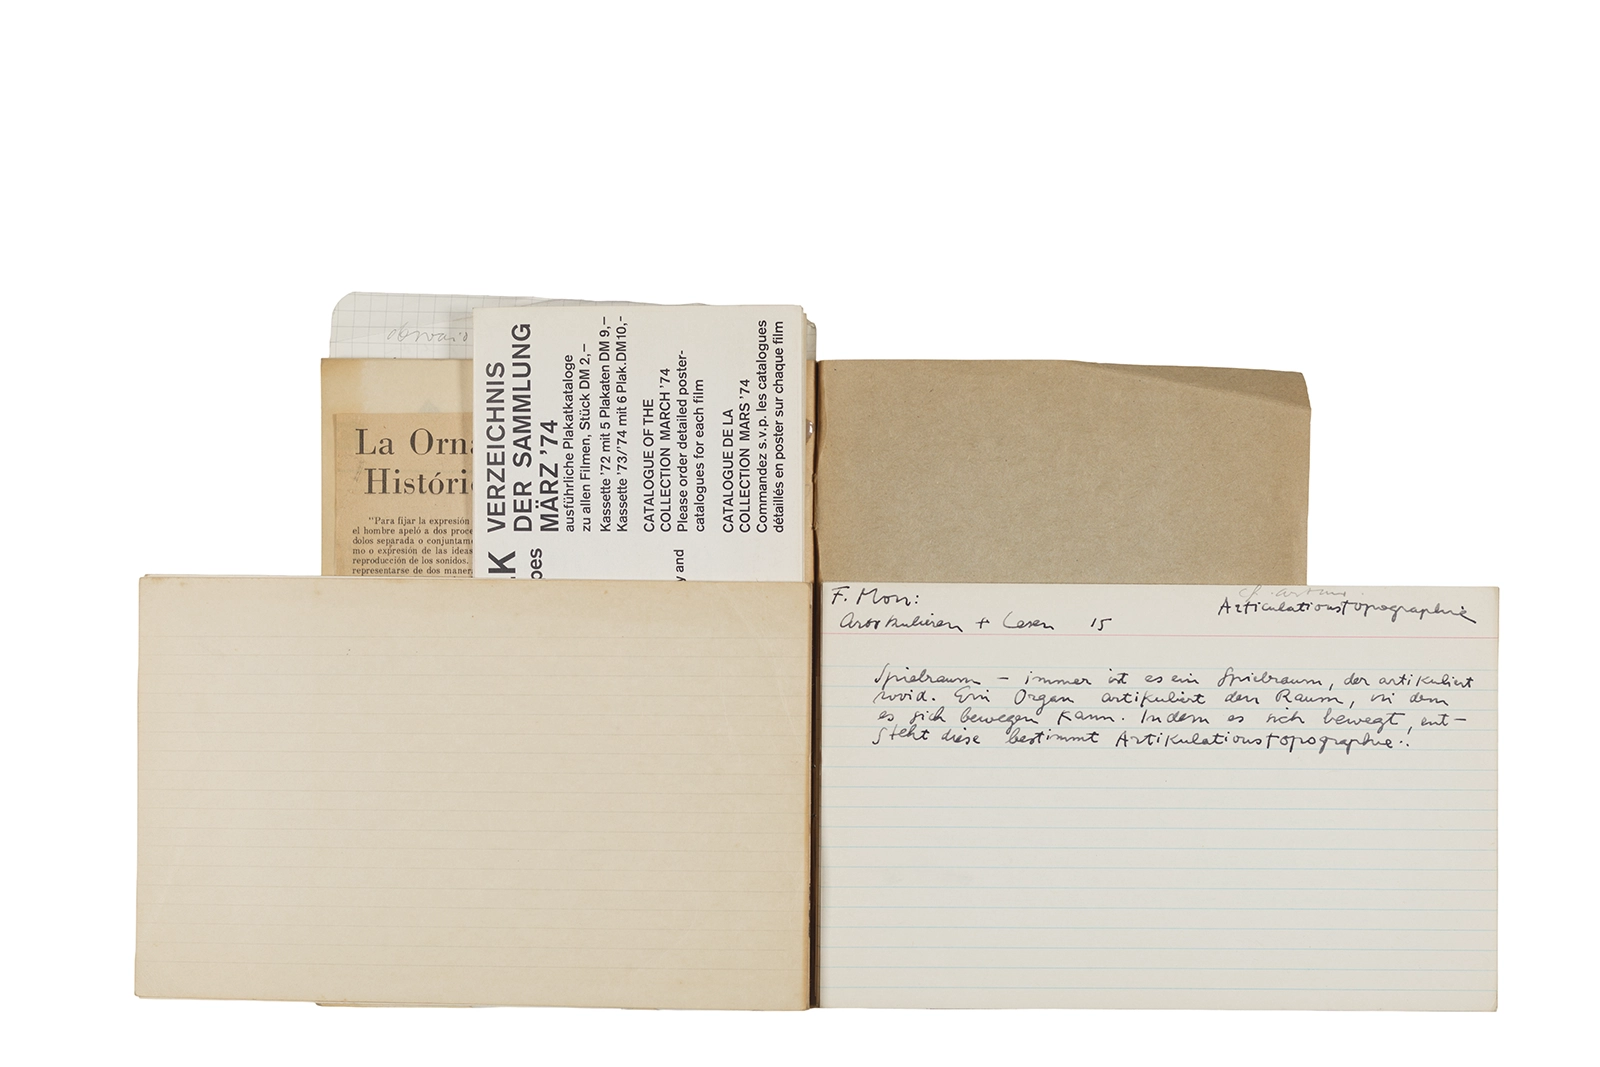 La Orn
Históri
"Para fijar la expresión
el hombre apeló a dos proce
dolos separada o conjuntame
mo o expresión de las ideas
reproducción de los sonidos.
representarse de dos maner
K
pes
y and
VERZEICHNIS
DER SAMMLUNG
MÄRZ '74
ausführliche Plakatkataloge
zu allen Filmen, Stück DM 2,–
Kassette '72 mit 5 Plakaten DM 9,–
Kassette '73/'74 mit 6 Plak.DM10,-
CATALOGUE OF THE
COLLECTION MARCH '74
Please order detailed poster-
catalogues for each film
CATALOGUE DE LA
COLLECTION MARS '74
Commandez s.v.p. les catalogues
détaillés en poster sur chaque film
F. Mon:
Artikulieren + Lesen 15
Articulationstopographie
Spielraum – immer ist es ein Spielraum, der artikuliert
wird. Ein Organ artikuliert den Raum, in dem
es sich bewegen kann. Indem es sich bewegt, ent-
steht diese bestimmt Artikulationstopographie.